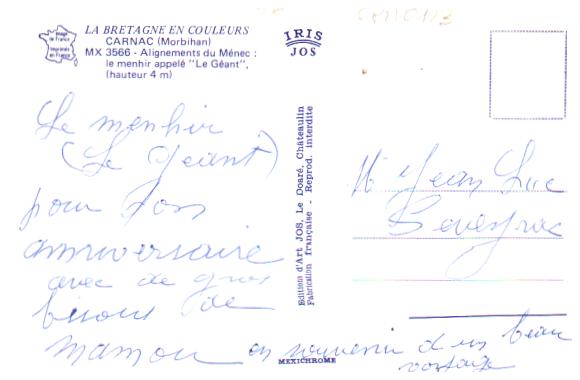 LA BRETAGNE EN COULEURS
CARNAC (Morbihan)
MX 3566 - Alignements du Ménec :
le menhir appelé "Le Géant",
(hauteur 4 m)
Image de France
Imprimée en France
IRIS
JOS
Le menhir
(Le Géant)
pour ton
anniversaire
avec de gros
bisous de
maman en souvenir d'un beau
voyage
Editions d'Art JOS, Le Doaré, Châteaulin
Fabrication française - Reprod. interdite
MEXICHROME
M Jean Luc